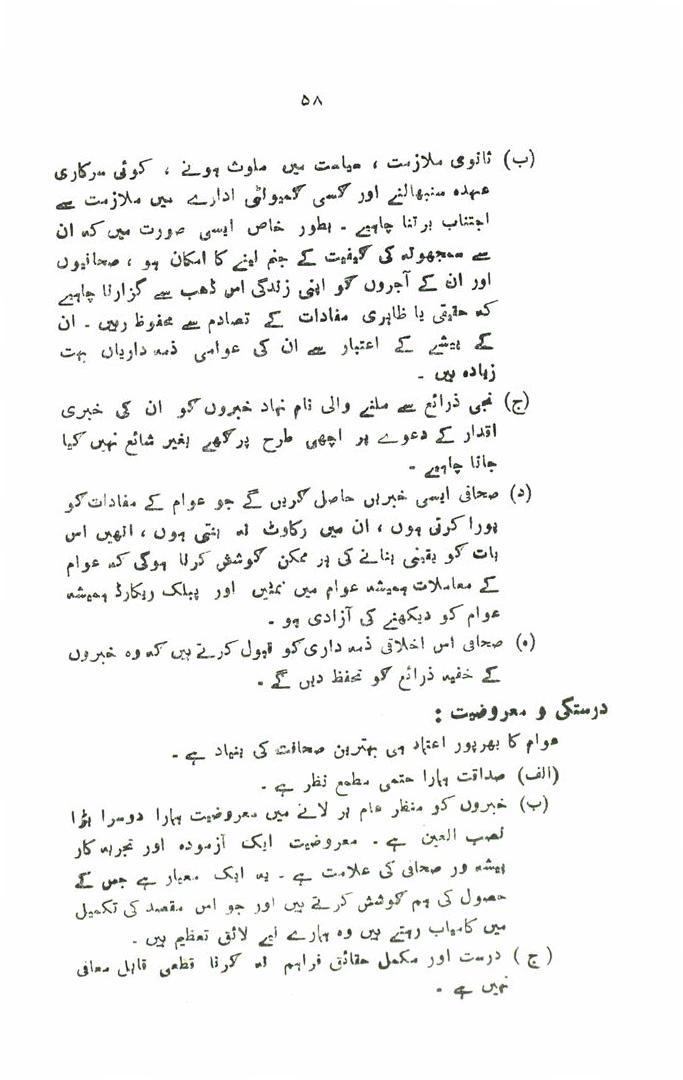 ۵۸
(ب) ثانوی ملازمت ، سیاست میں ملوث ہونے ، کوئی سرکاری
عہدہ سنبھالنے اور کسی کمیونٹی ادارے میں ملازمت سے
اجتناب برتنا چاہیے ۔ بطور خاص ایسی صورت میں کہ ان
سے سمجھوتہ کی کیفیت کے جنم لینے کا امکان ہو ، صحافیوں
اور ان کے آجروں کو اپنی زندگی اس ڈھب سے گزارنا چاہیے
کہ حقیقی یا ظاہری مفادات کے تصادم سے محفوظ رہیں ۔ ان
کے پیشے کے اعتبار سے ان کی عوامی ذمہ داریاں بہت
زیادہ ہیں ۔
(ج) نجی ذرائع سے ملنے والی نام نہاد خبروں کو ان کی خبری
اقدار کے دعوے پر اچھی طرح پرکھے بغیر شائع نہیں کیا
جانا چاہیے ۔
(د) صحافی ایسی خبریں حاصل کریں گے جو عوام کے مفادات کو
پورا کرتی ہوں ، ان میں رکاوٹ نہ بنتی ہوں ، انھیں اس
بات کو یقینی بنانے کی ہر ممکن کوشش کرنا ہوگی کہ عوام
کے معاملات ہمیشہ عوام میں نمٹیں اور پبلک ریکارڈ ہمیشہ
عوام کو دیکھنے کی آزادی ہو ۔
(ہ) صحافی اس اخلاقی ذمہ داری کو قبول کرتے ہیں کہ وہ خبروں
کے خفیہ ذرائع کو تحفظ دیں گے ۔
درستگی و معروضیت :
عوام کا بھرپور اعتماد ہی بہترین صحافت کی بنیاد ہے ۔
(الف) صداقت ہمارا حتمی مطمع نظر ہے ۔
(ب) خبروں کو منظر عام پر لانے میں معروضیت ہمارا دوسرا بڑا
نصب العین ہے ۔ معروضیت ایک آزمودہ اور تجربہ کار
پیشہ ور صحافی کی علامت ہے ۔ یہ ایک معیار ہے جس کے
حصول کی ہم کوشش کرتے ہیں اور جو اس مقصد کی تکمیل
میں کامیاب رہتے ہیں وہ ہمارے لیے لائق تعظیم ہیں ۔
(ج) درست اور مکمل حقائق فراہم نہ کرنا قطعی قابل معافی
نہیں ہے ۔